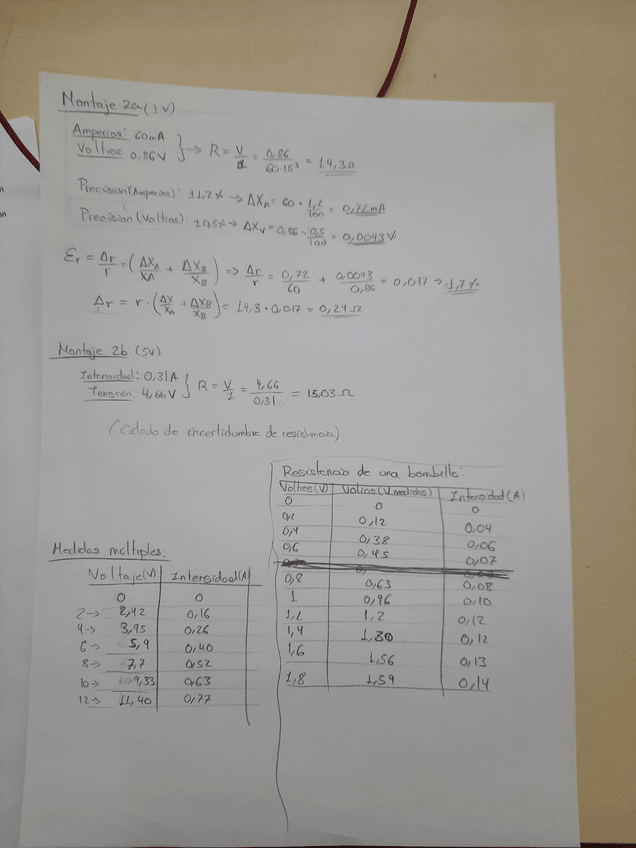 Montaje 2a (1V)
Amperios: 60mA
Voltios: 0,86V } → R = V/I = 0,86/60·10³ = 14,3Ω
Precision (Amperios): ±1,2% → ΔXA = 60 · 1,2/100 = 0,72mA
Precision (Voltios): ±0,5% → ΔXV = 0,86 · 0,5/100 = 0,0043V
Er = Δr/r = (ΔXA/XA + ΔXB/XB) => Δr/r = 0,72/60 + 0,0043/0,86 = 0,017 → ±1,7%
Δr = r · (ΔX/XA + ΔXB/XB) = 14,3 · 0,017 = 0,24Ω
Montaje 2b: (5V)
Intensidad: 0,31A
Tensión: 4,66V } R = V/I = 4,66/0,31 = 15,03Ω
(Calculo de incertidumbre de resistencia)
Medidas múltiples:
Voltaje(V) Intensidad(A)
0 0
2→ 2,42 0,16
4→ 3,95 0,26
6→ 5,9 0,40
8→ 7,7 0,52
10→ 9,33 0,63
12→ 11,40 0,77
Resistencia de una bombilla:
Voltios(V) Voltios(V medidos) Intensidad(A)
0 0 0
0,2 0,12 0,04
0,4 0,38 0,06
0,6 0,45 0,07
0,8 0,63 0,08
1 0,96 0,10
1,2 1,2 0,12
1,4 1,30 0,12
1,6 1,56 0,13
1,8 1,59 0,14